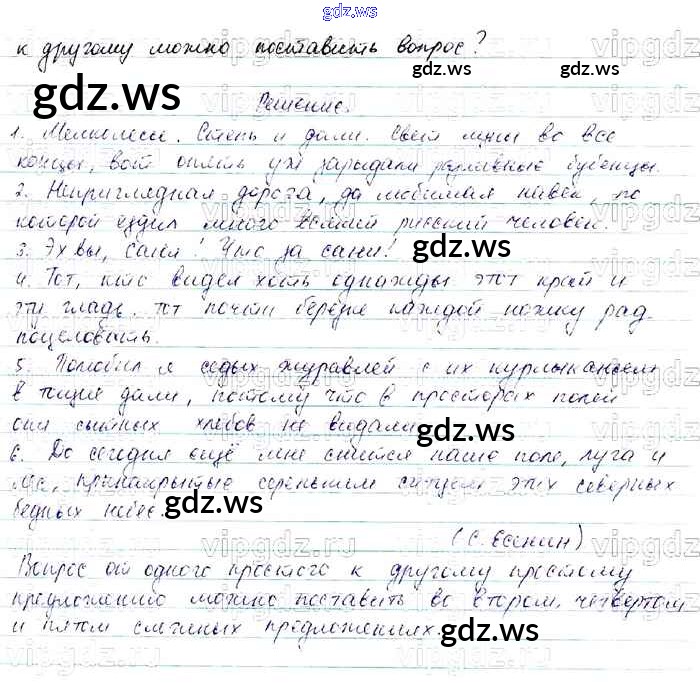 gdz.ws
к другому можно поставить вопрос?
Решение.
1. Мелколесье. Степь и дали. Свет луны во все
концы, вот опять уж зарыдали разливные бубенцы.
2. Неприглядная дорога, да любимая навек, по
которой ездил много всякий русский человек.
3. Эх вы, сани! Что за сани!
4. Тот, кто видел хоть однажды этот край и
эту гладь, тот почти берёзке каждой ножку рад
поцеловать.
5. Полюбил я седых журавлей с их курлыканьем
в тощие дали, потому что в просторах полей
они сытных хлебов не видали
6. До сегодня ещё мне снится наше поле, луга и
лес, принакрытые сереньким ситцем этих северных
бедных небес.
(С. Есенин)
Вопрос от одного простого к другому простому
предложению можно поставить во втором, четвёртом
и пятом сложных предложениях.
gdz.ws
gdz.ws
gdz.ws
gdz.ws
gdz.ws
gdz.ws
gdz.ws